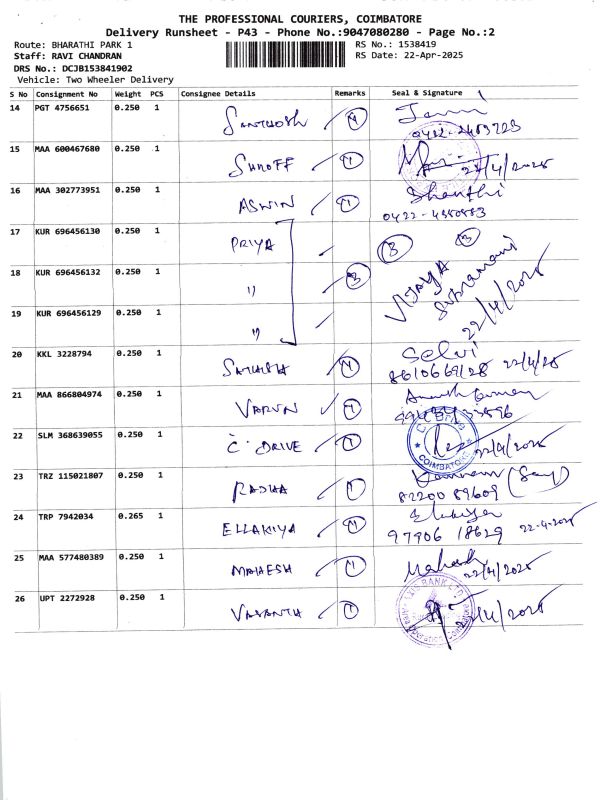 THE PROFESSIONAL COURIERS, COIMBATORE
Delivery Runsheet - P43 - Phone No.:9047080280 - Page No.:2
Route: BHARATHI PARK 1
RS No.: 1538419
Staff: RAVI CHANDRAN
RS Date: 22-Apr-2025
DRS No.: DCJB153841902
Vehicle: Two Wheeler Delivery
S No Consignment No Weight PCS Consignee Details Remarks Seal & Signature
14 PGT 4756651 0.250 1 SANTHOSH 1
15 MAA 600467680 0.250 1 SHROFF 1 22/4/2025
16 MAA 302773951 0.250 1 ASWIN 1 Shanthi
17 KUR 696456130 0.250 1 PRIYA 3 3
18 KUR 696456132 0.250 1 " 3 VIJAYA
22/4/2025
19 KUR 696456129 0.250 1 "
20 KKL 3228794 0.250 1 SATHISH 1 Selvi
8610669128 22/4/25
21 MAA 866804974 0.250 1 VARUN 1
22 SLM 368639055 0.250 1 C DRIVE 1 22/4/2025
COIMBATORE
23 TRZ 115021807 0.250 1 RADHA 1
82200 89609
24 TRP 7942034 0.265 1 ELLAKIYA 1
97906 18629 22-4-2025
25 MAA 577480389 0.250 1 MAHESH 1 Mahesh
22/4/2025
26 UPT 2272928 0.250 1 VASANTH 1 22/4/2025